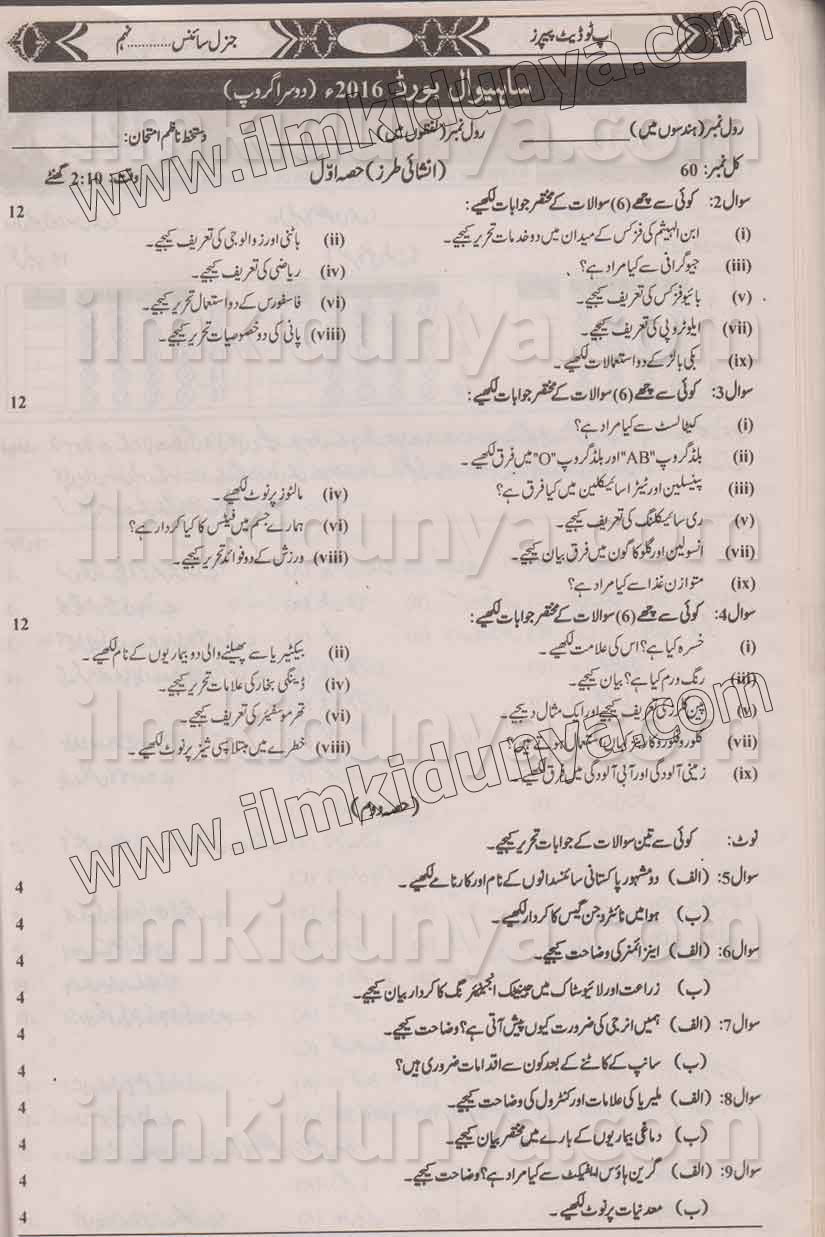 اپ ٹو ڈیٹ پیپرز
جنرل سائنس............نہم
ساہیوال بورڈ 2016ء (دوسرا گروپ)
رول نمبر (ہندسوں میں) ____________ رول نمبر (لفظوں میں) ____________ دستخط ناظم امتحان: ____________
کل نمبر: 60 (انشائی طرز) حصہ اوّل وقت: 2:10 گھنٹے
سوال 2: کوئی سے چھے (6) سوالات کے مختصر جوابات لکھیے: 12
(i) ابن الہیثم کی فزکس کے میدان میں دو خدمات تحریر کیجیے۔ (ii) باٹنی اور زوالوجی کی تعریف کیجیے۔
(iii) جیوگرافی سے کیا مراد ہے؟ (iv) ریاضی کی تعریف کیجیے۔
(v) بائیوفزکس کی تعریف کیجیے۔ (vi) فاسفورس کے دو استعمال تحریر کیجیے۔
(vii) ایلوٹروپی کی تعریف کیجیے۔ (viii) پانی کی دو خصوصیات تحریر کیجیے۔
(ix) بکی بالز کے دو استعمالات لکھیے۔
سوال 3: کوئی سے چھے (6) سوالات کے مختصر جوابات لکھیے: 12
(i) کیٹالسٹ سے کیا مراد ہے؟
(ii) بلڈ گروپ "AB" اور بلڈ گروپ "O" میں فرق لکھیے۔
(iii) پینسلین اور ٹیٹراسائیکلین میں کیا فرق ہے؟ (iv) مالٹوز پر نوٹ لکھیے۔
(v) ری سائیکلنگ کی تعریف کیجیے۔ (vi) ہمارے جسم میں فیٹس کا کیا کردار ہے؟
(vii) انسولین اور گلوکاگون میں فرق بیان کیجیے۔ (viii) ورزش کے دو فوائد تحریر کیجیے۔
(ix) متوازن غذا سے کیا مراد ہے؟
سوال 4: کوئی سے چھے (6) سوالات کے مختصر جوابات لکھیے: 12
(i) خسرہ کیا ہے؟ اس کی علامت لکھیے۔ (ii) بیکٹیریا سے پھیلنے والی دو بیماریوں کے نام لکھیے۔
(iii) رنگ ورم کیا ہے؟ بیان کیجیے۔ (iv) ڈینگی بخار کی علامات تحریر کیجیے۔
(v) پین کلرز کی تعریف کیجیے اور ایک مثال دیجیے۔ (vi) تھرموسفیئر کی تعریف کیجیے۔
(vii) کلوروفلوروکاربنز کہاں استعمال ہوتے ہیں؟ (viii) خطرے میں مبتلا سپی شیز پر نوٹ لکھیے۔
(ix) زمینی آلودگی اور آبی آلودگی میں فرق لکھیے۔
(حصہ دوم)
نوٹ: کوئی سے تین سوالات کے جوابات تحریر کیجیے۔
سوال 5: (الف) دو مشہور پاکستانی سائنسدانوں کے نام اور کارنامے لکھیے۔ 4
(ب) ہوا میں نائٹروجن گیس کا کردار لکھیے۔ 4
سوال 6: (الف) اینزائمز کی وضاحت کیجیے۔ 4
(ب) زراعت اور لائیوسٹاک میں جینیٹک انجینئرنگ کا کردار بیان کیجیے۔ 4
سوال 7: (الف) ہمیں انرجی کی ضرورت کیوں پیش آتی ہے؟ وضاحت کیجیے۔ 4
(ب) سانپ کے کاٹنے کے بعد کون سے اقدامات ضروری ہیں؟ 4
سوال 8: (الف) ملیریا کی علامات اور کنٹرول کی وضاحت کیجیے۔ 4
(ب) دماغی بیماریوں کے بارے میں مختصر بیان کیجیے۔ 4
سوال 9: (الف) گرین ہاؤس ایفیکٹ سے کیا مراد ہے؟ وضاحت کیجیے۔ 4
(ب) معدنیات پر نوٹ لکھیے۔ 4
www.ilmkidunya.com
www.ilmkidunya.com
ilmkidunya.com
ilmkidunya.com
ilmkidunya.com
ilmkidunya.com
ilmkidunya.com
ilmkidunya.com